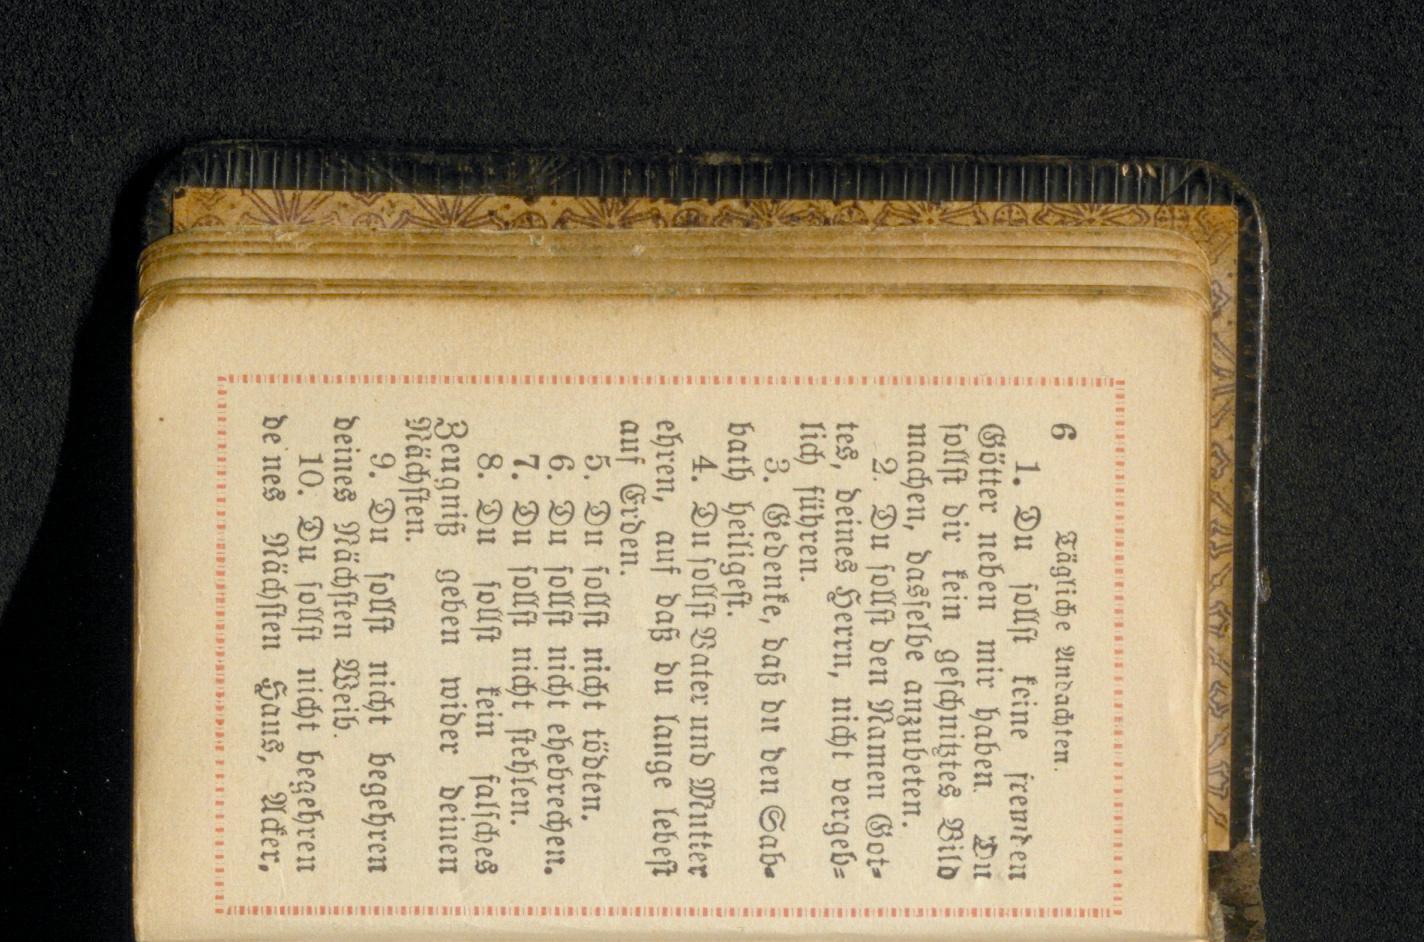 6
Tägliche Andachten.
1. Du sollst keine fremden
Götter neben mir haben. Du
sollst dir kein geschnitztes Bild
machen, dasselbe anzubeten.
2. Du sollst den Namen Got-
tes, deines Herrn, nicht vergeb-
lich führen.
3. Gedenke, daß du den Sab-
bath heiligest.
4. Du sollst Vater und Mutter
ehren, auf daß du lange lebest
auf Erden.
5. Du sollst nicht tödten.
6. Du sollst nicht ehebrechen.
7. Du sollst nicht stehlen.
8. Du sollst kein falsches
Zeugniß geben wider deinen
Nächsten.
9. Du sollst nicht begehren
deines Nächsten Weib.
10. Du sollst nicht begehren
de nes Nächsten Haus, Acker,